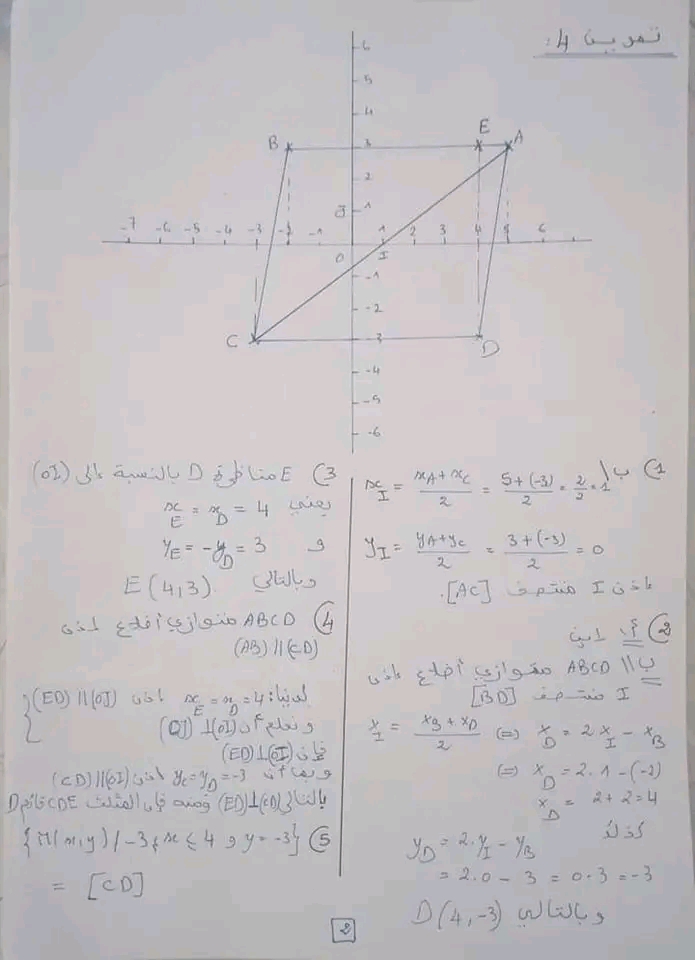 تمرين 4:
6
5
4
B 3 E A
2
J 1
-7 -6 -5 -4 -3 -2 -1 0 1 2 3 4 5 6
I
-1
-2
C -3 D
-4
-5
-6
1) ب\ x_I = (x_A + x_C)/2 = (5+(-3))/2 = 2/2 = 1
y_I = (y_A + y_C)/2 = (3+(-3))/2 = 0
إذن I منتصف [AC].
2) أ\
ب\\ ABCD متوازي أضلاع إذن
I منتصف [BD]
x_I = (x_B + x_D)/2 (=) x_D = 2 x_I - x_B
(=) x_D = 2.1 - (-2)
x_D = 2+2 = 4
كذلك
y_D = 2.y_I - y_B
= 2.0 - 3 = 0.3 = -3
وبالتالي D(4,-3)
3) E مناظرة D بالنسبة إلى (OI)
يعني x_E = x_D = 4
و y_E = -y_D = 3
وبالتالي E(4,3).
4) ABCD متوازي أضلاع إذن
(AB) // (CD)
لدينا: x_E = x_D = 4 إذن (ED) // (OJ)
و نعلم أن (OI)⊥(OJ)
فإن (OI)⊥(ED)
وبما أن y_C = y_D = -3 إذن (CD) // (OI)
بالتالي (CD)⊥(ED) ومنه فإن المثلث CDE قائم D
5) {M(x,y) / -3 ≤ x ≤ 4 و y = -3}
= [CD]
2